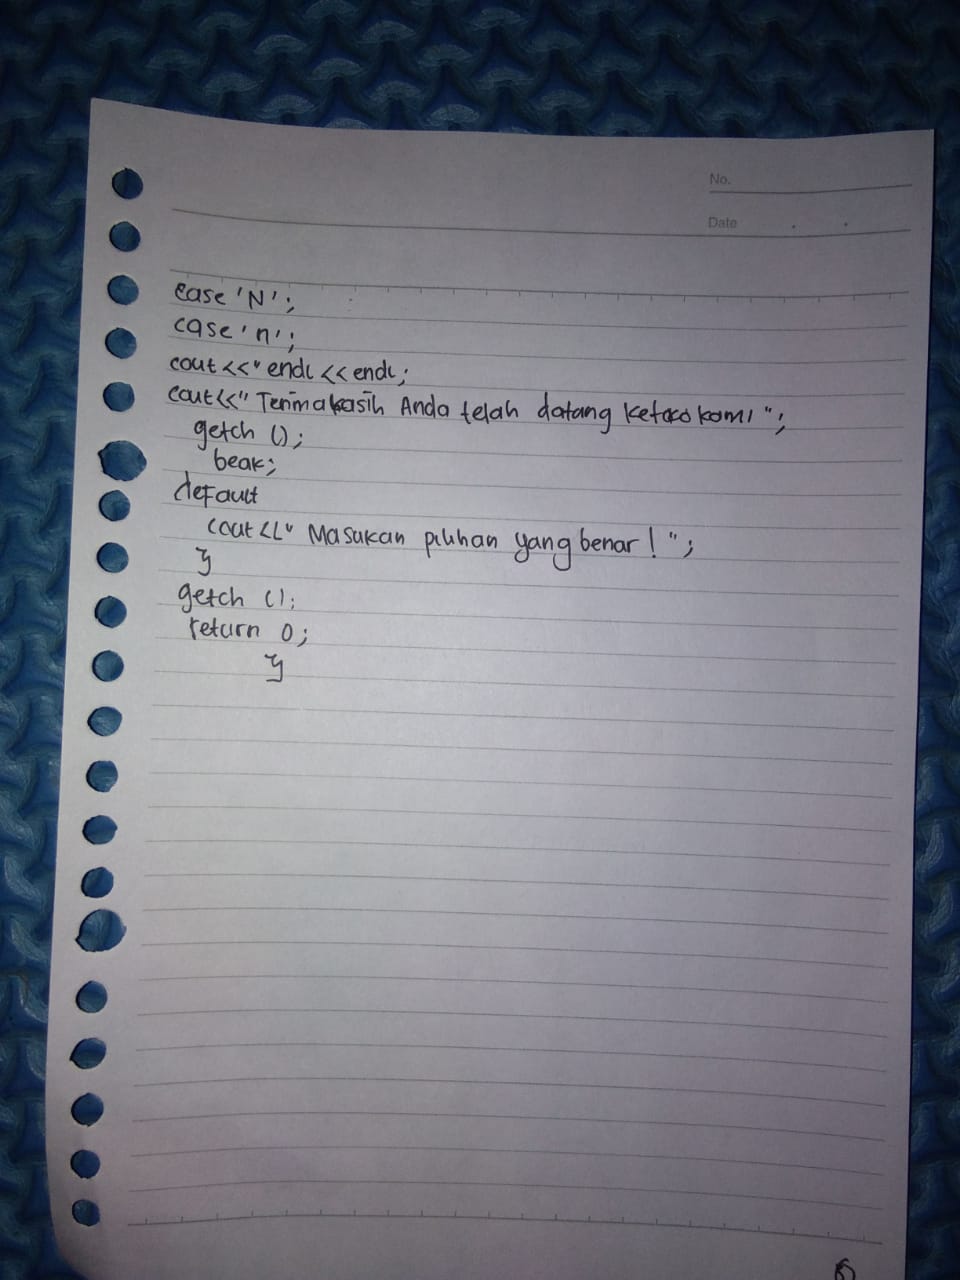 No.
Date
case 'N';
case 'n';
cout <<" endl << endl;
cout<<" Terimakasih Anda telah datang ketoko kami ";
getch ();
beak;
default
cout <<" Masukan pilihan yang benar! ";
}
getch ();
return 0;
}